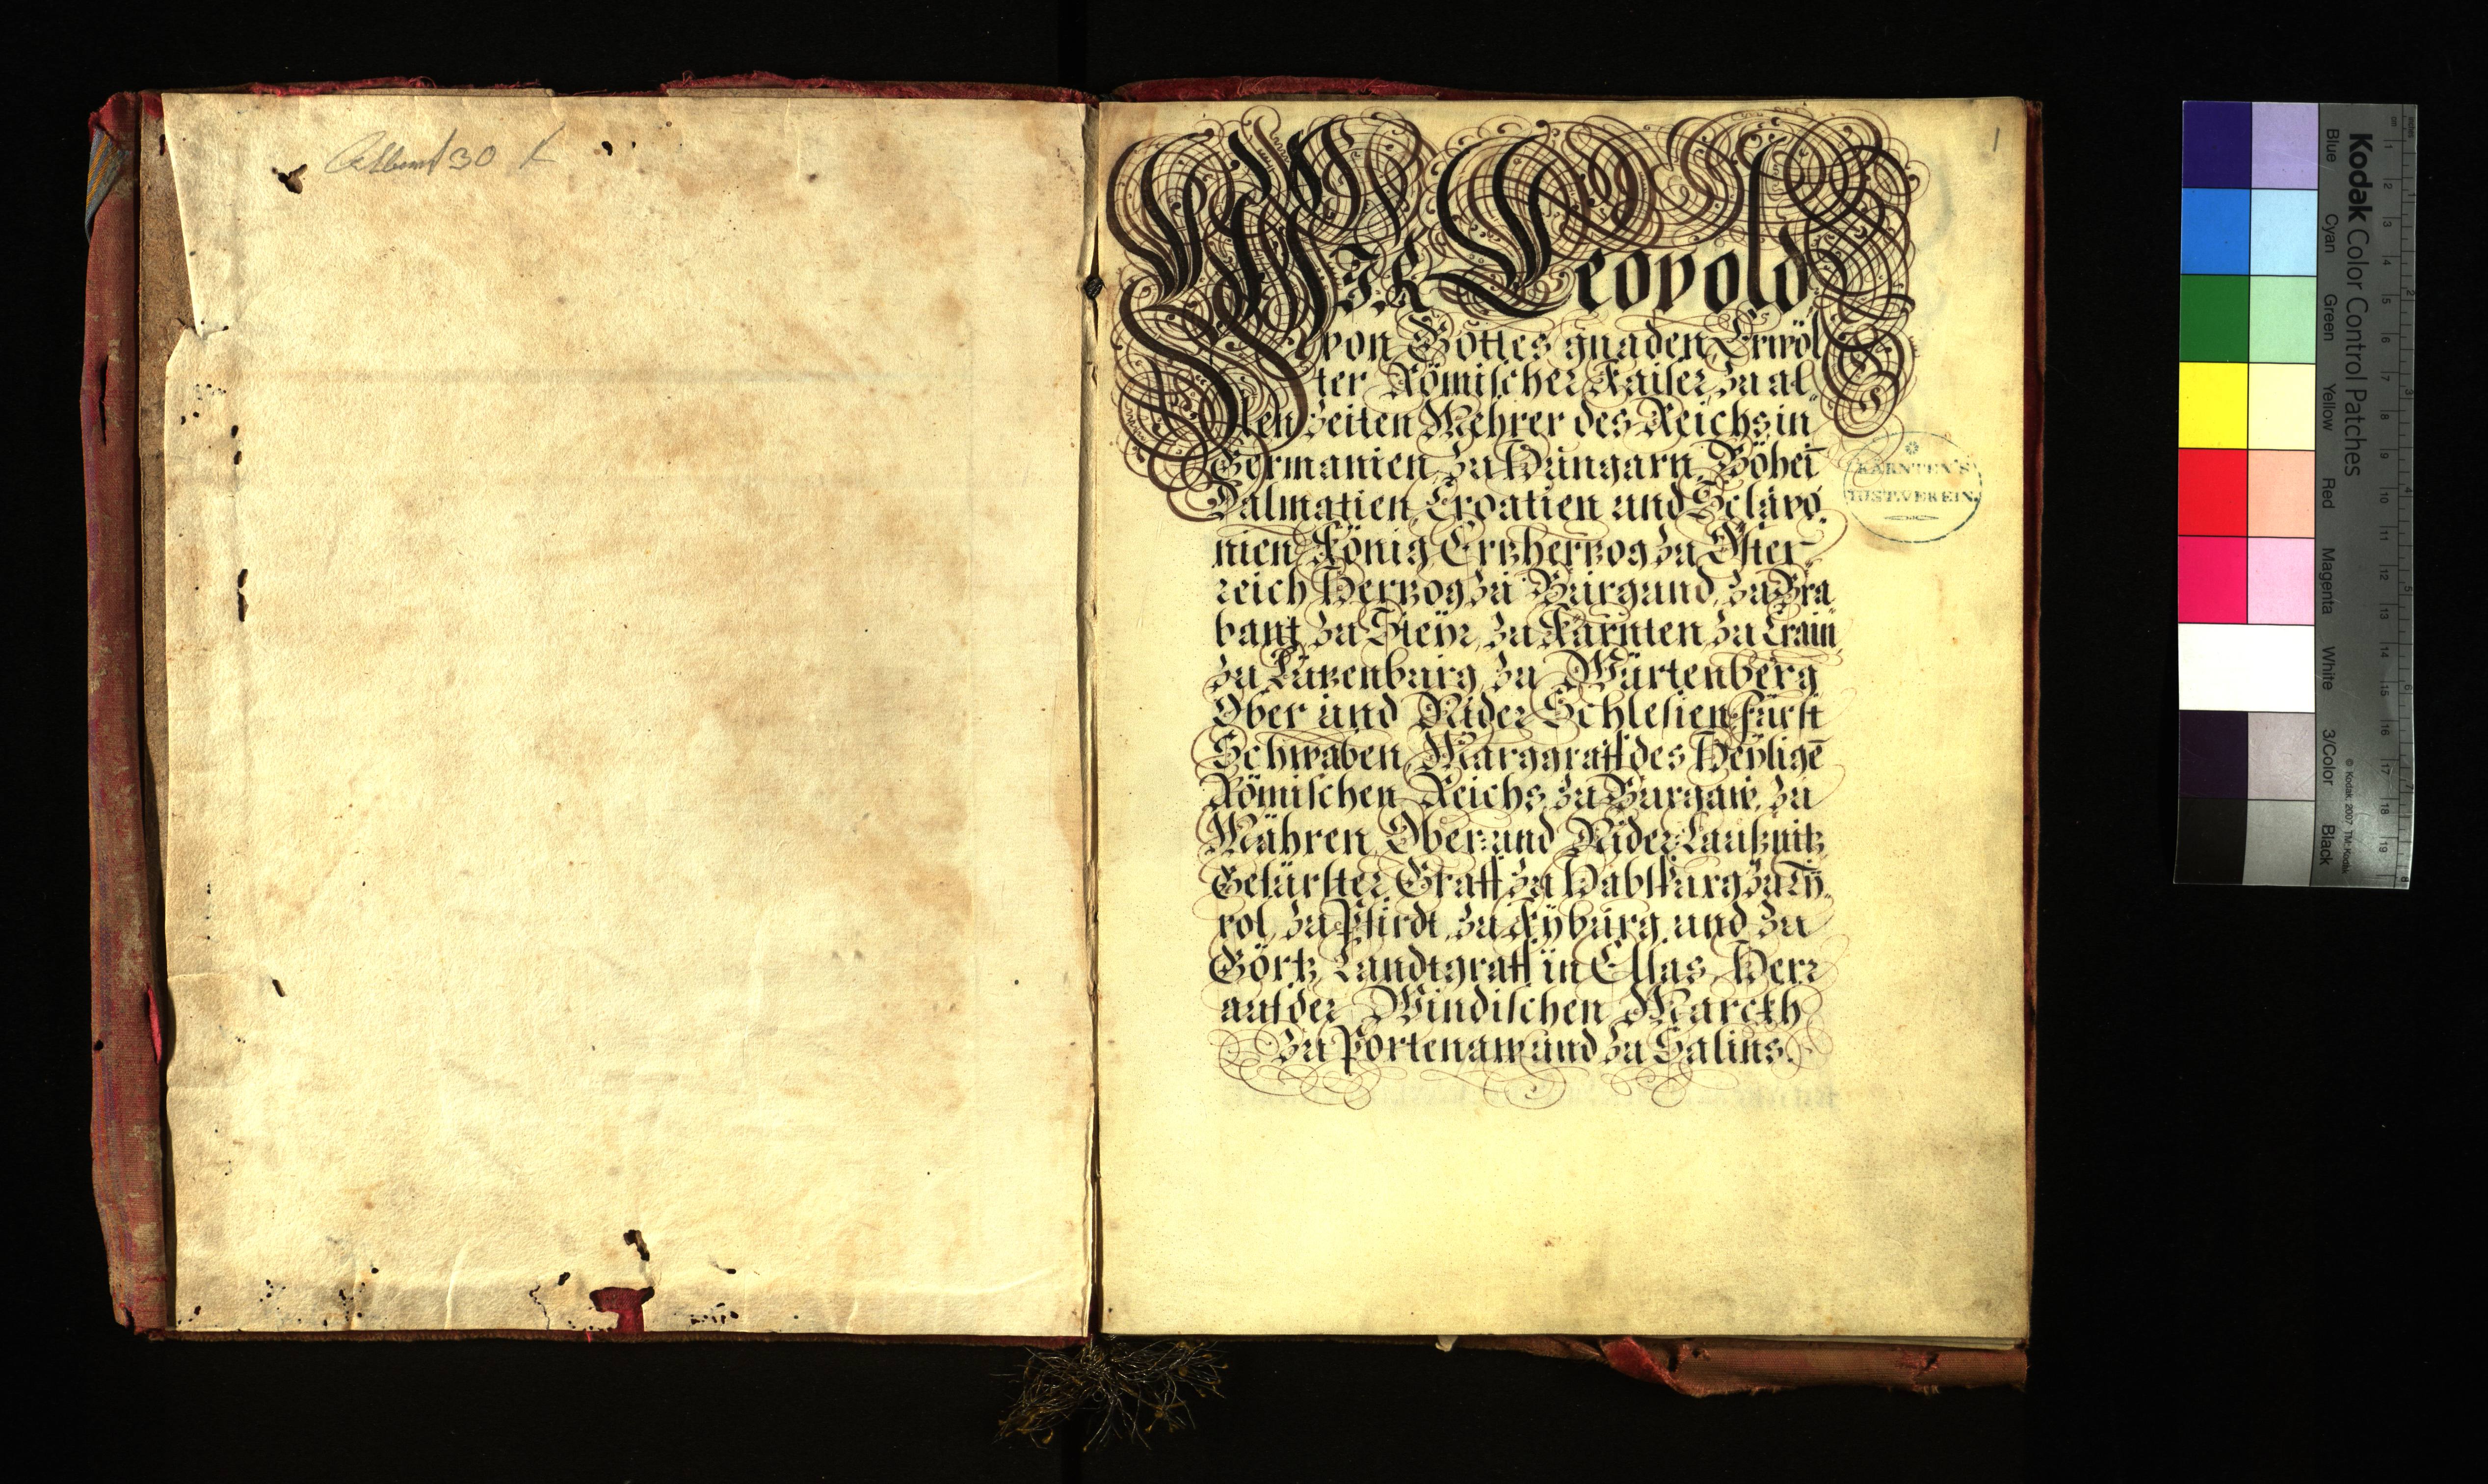 30 K
1
WIR Leopold
von Gottes gnaden Erwöl
ter Römischer Kaiser zu al,,
len zeiten Mehrer des Reichs in
Germanien, zu Hungarn, Böheī
Dalmatien, Croatien und Sclavo,
nien König, Ertzhertzog zu Öster-
reich Hertzog zu Burgund, zu Bra
bant, zu Steyr, zu Kärnten, zu Crain,
zu Lutzenburg, zu Würtenberg
Ober und Nider Schlesien, fürst
Schwaben, Marggraff des Heyligē
Römischen Reichs, zu Burgaw, zu
Mähren, Ober und Nider Laußnitz,
Gefürster Graff zu Habspurg, zu Ty,,
rol, zu Pfirdt, zu Kyburg, und zu
Görtz, Landtgraff in Elsas, Herr
auf der Windischen Marckh
zu Portenaw und zu Salins.
KÄRNTEN'S
HIST. VEREIN.
Kodak Color Control Patches
© Kodak, 2007 TM: Kodak
Blue Cyan Green Yellow Red Magenta White 3/Color Black
cm 1 2 3 4 5 6 7 8 9 10 11 12 13 14 15 16 17 18 19
inches 1 2 3 4 5 6 7 8